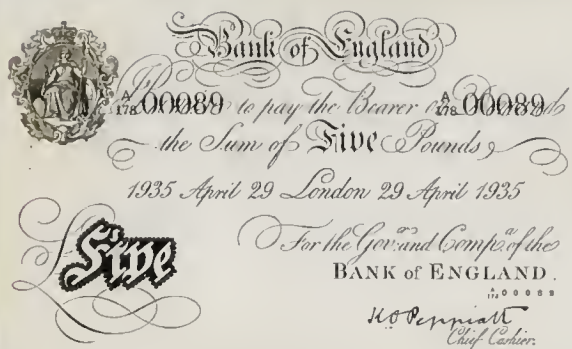 Bank of England
A/178 00089 to pay the Bearer on Demand A/178 00089
the Sum of Five Pounds
1935 April 29 London 29 April 1935
For the Gov.r and Comp.a of the
BANK of ENGLAND.
A/178 00089
£ Five
K O Peppiatt
Chief Cashier.